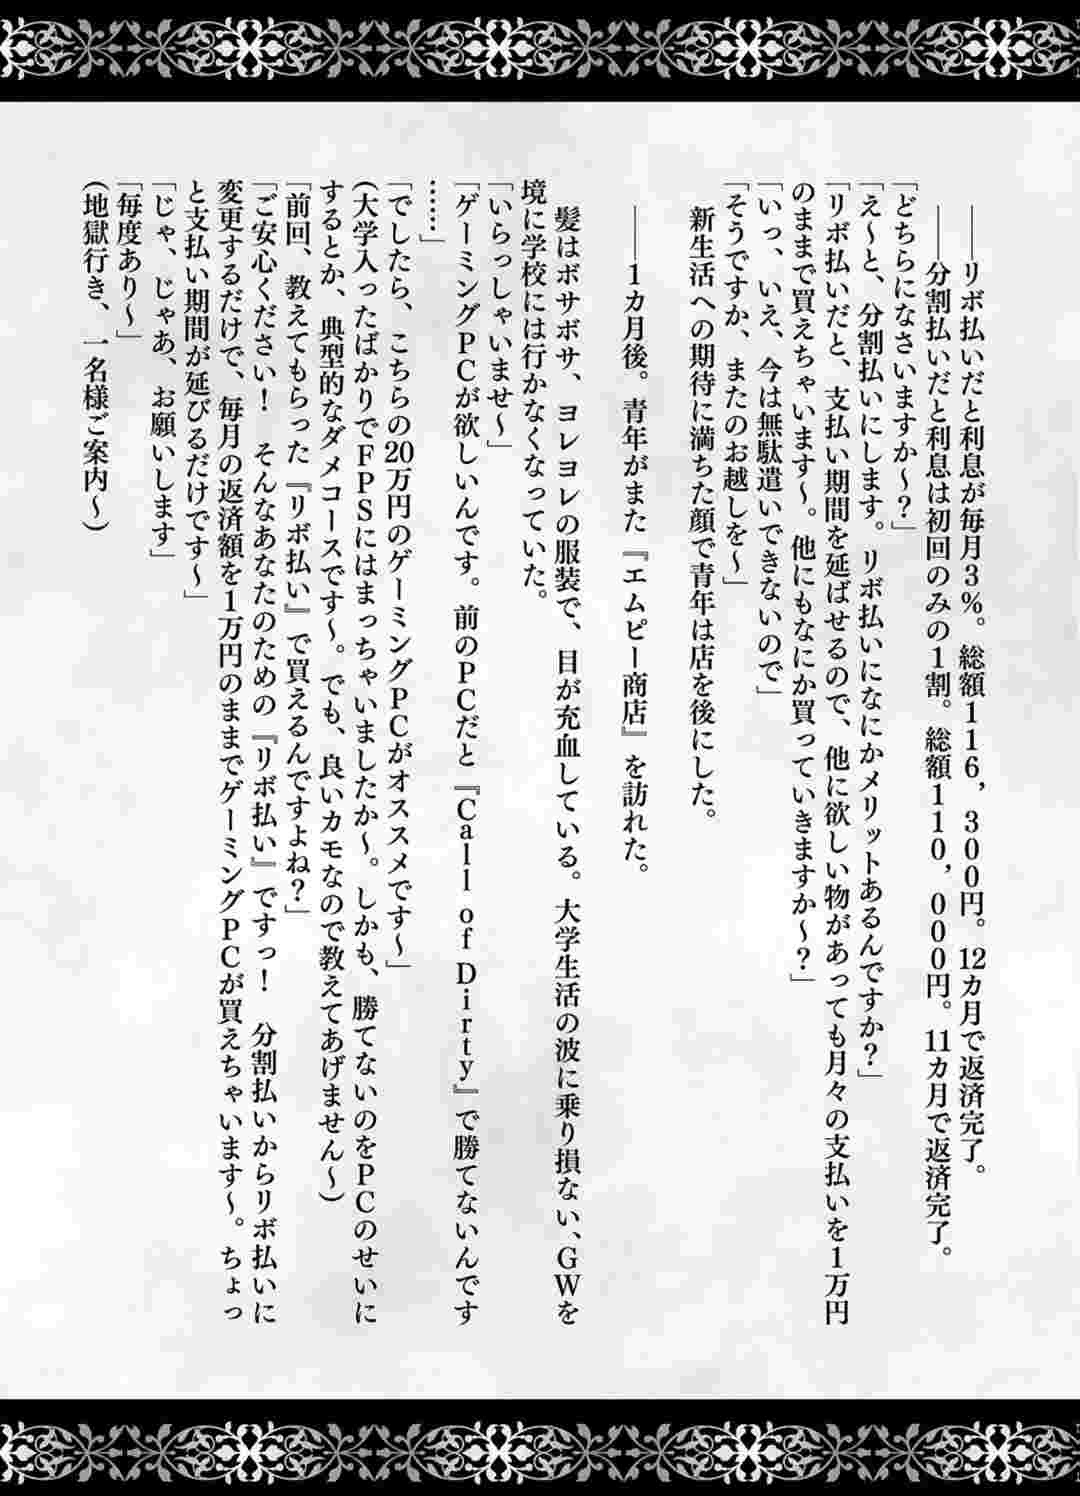 ――リボ払いだと利息が毎月3%。総額116,300円。12カ月で返済完了。
――分割払いだと利息は初回のみの1割。総額110,000円。11カ月で返済完了。
「どちらになさいますか～?」
「え～と、分割払いにします。リボ払いになにかメリットあるんですか?」
「リボ払いだと、支払い期間を延ばせるので、他に欲しい物があっても月々の支払いを1万円
のままで買えちゃいます～。他にもなにか買っていきますか～?」
「いっ、いえ、今は無駄遣いできないので」
「そうですか、またのお越しを～」
新生活への期待に満ちた顔で青年は店を後にした。
――1カ月後。青年がまた『エムピー商店』を訪れた。
髪はボサボサ、ヨレヨレの服装で、目が充血している。大学生活の波に乗り損ない、GWを
境に学校には行かなくなっていた。
「いらっしゃいませ～」
「ゲーミングPCが欲しいんです。前のPCだと『Call of Dirty』で勝てないんです
……」
「でしたら、こちらの20万円のゲーミングPCがオススメです～」
(大学入ったばかりでFPSにはまっちゃいましたか～。しかも、勝てないのをPCのせいに
するとか、典型的なダメコースです～。でも、良いカモなので教えてあげません～)
「前回、教えてもらった『リボ払い』で買えるんですよね?」
「ご安心ください! そんなあなたのための『リボ払い』ですっ! 分割払いからリボ払いに
変更するだけで、毎月の返済額を1万円のままでゲーミングPCが買えちゃいます～。ちょっ
と支払い期間が延びるだけです～」
「じゃ、じゃあ、お願いします」
「毎度あり～」
(地獄行き、一名様ご案内～)